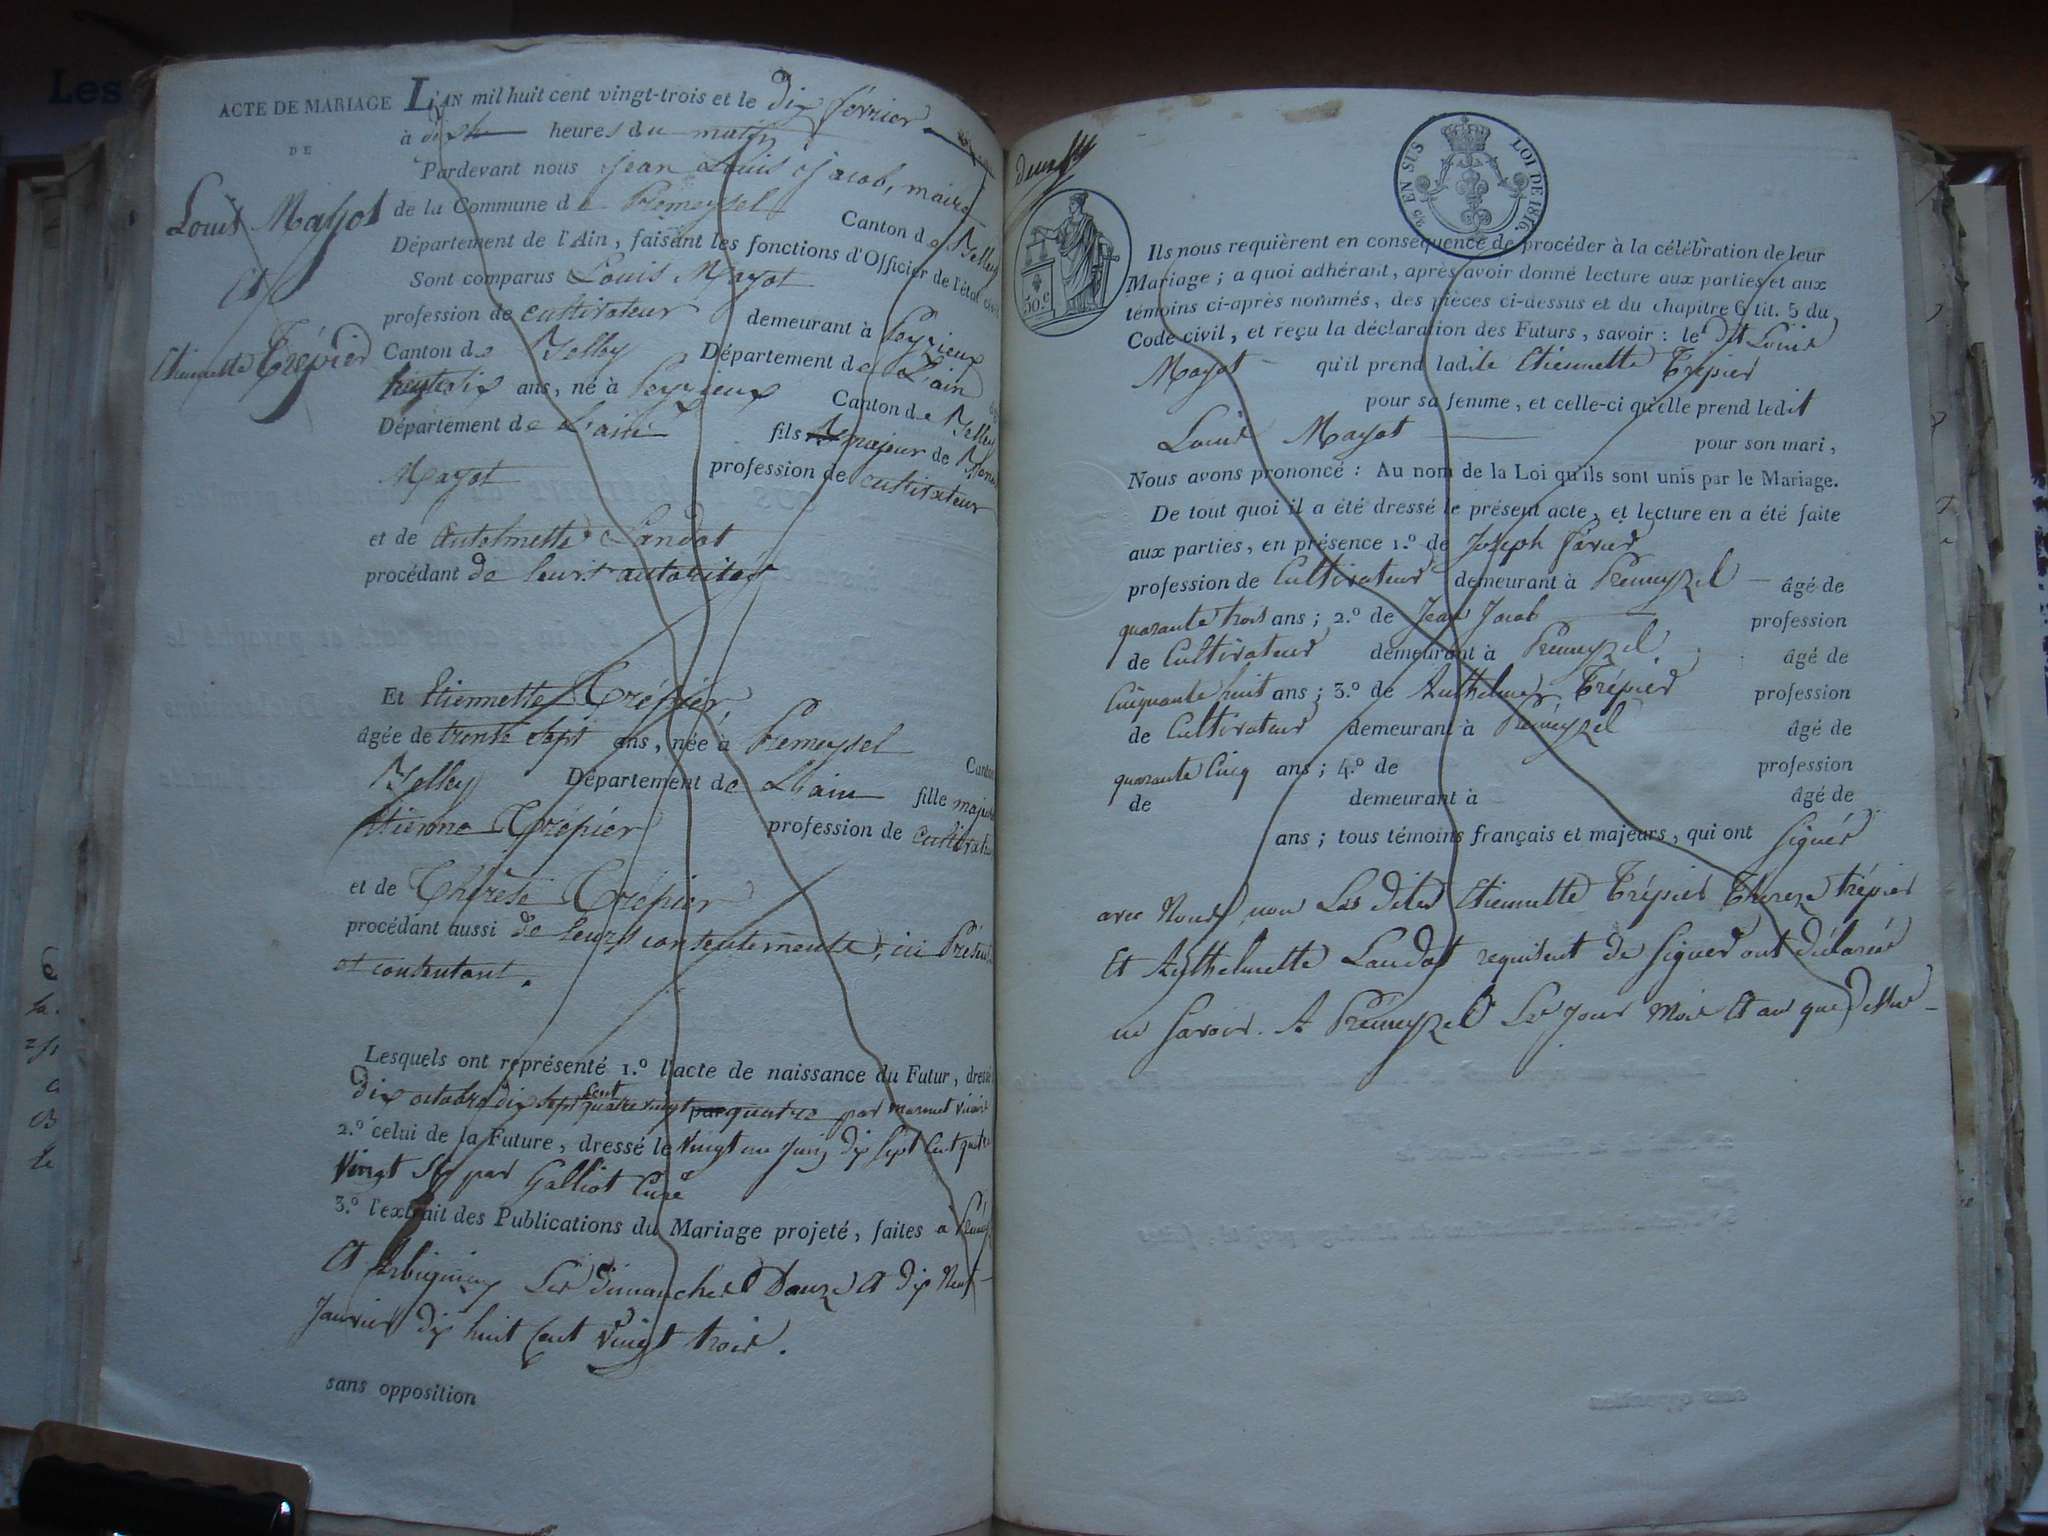 ACTE DE MARIAGE
DE
Louis Mayot
Et
Etiennette Trépier
L'AN mil huit cent vingt-trois et le dix février
à dix heures du matin
Pardevant nous Jean Louis Jacob, maire
de la Commune de Premeysel Canton de Belley
Département de l'Ain, faisant les fonctions d'Officier de l'état civil
Sont comparus Louis Mayot
profession de cultivateur demeurant à Peyrieux
Canton de Belley Département de L'ain
ans, né à Peyrieux Canton de Belley
Département de L'ain fils majeur de
Mayot profession de cultivateur
et de Antelmette Landot
procédant de leurs autorités
Et Etiennette Trépier
âgée de trente sept ans, née à Premeysel Canton
Belley Département de L'ain fille majeure
Etienne Trépier profession de cultivateur
et de Thérèse Trépier
procédant aussi de leurs contentements, ici Présents
et contentant.
Lesquels ont représenté 1.º l'acte de naissance du Futur, dressé
Dix octobre dix sept cent quatre vingt quatre par vicaire
2.º celui de la Future, dressé le vingt un Juin dix sept cent quatre
vingt six par Galliot Curé
3.º l'extrait des Publications du Mariage projeté, faites à
Et Arbignieu Les dimanches Douze et dix Neuf
Janvier dix huit cent vingt trois.
sans opposition
25 EN SUS LOI DE 1816
50 c
Ils nous requièrent en conséquence de procéder à la célébration de leur
Mariage; a quoi adhérant, après avoir donné lecture aux parties et aux
témoins ci-après nommés, des pièces ci-dessus et du chapitre 6 tit. 5 du
Code civil, et reçu la déclaration des Futurs, savoir: le dt Louis
Mayot qu'il prend ladite Etiennette Trépier
pour sa femme, et celle-ci qu'elle prend ledit
Louis Mayot pour son mari,
Nous avons prononcé: Au nom de la Loi qu'ils sont unis par le Mariage.
De tout quoi il a été dressé le présent acte, et lecture en a été faite
aux parties, en présence 1.º de Joseph Favier
profession de Cultivateur demeurant à Premeyzel âgé de
quarante trois ans; 2.º de Jean Jacob profession
de Cultivateur demeurant à Premeyzel âgé de
Cinquante huit ans; 3.º de Anthelme Trépier profession
de Cultivateur demeurant à Prémeyzel âgé de
quarante Cinq ans; 4.º de profession
de demeurant à âgé de
ans; tous témoins français et majeurs, qui ont Signés
avec Nous non Les dites Etiennette Trépier Thereze trépier
Et Anthelmette Landot requisent de Signer ont déclaré
ne Savoir. A Prémeyzel Les Jour Mois Et an que Dessus